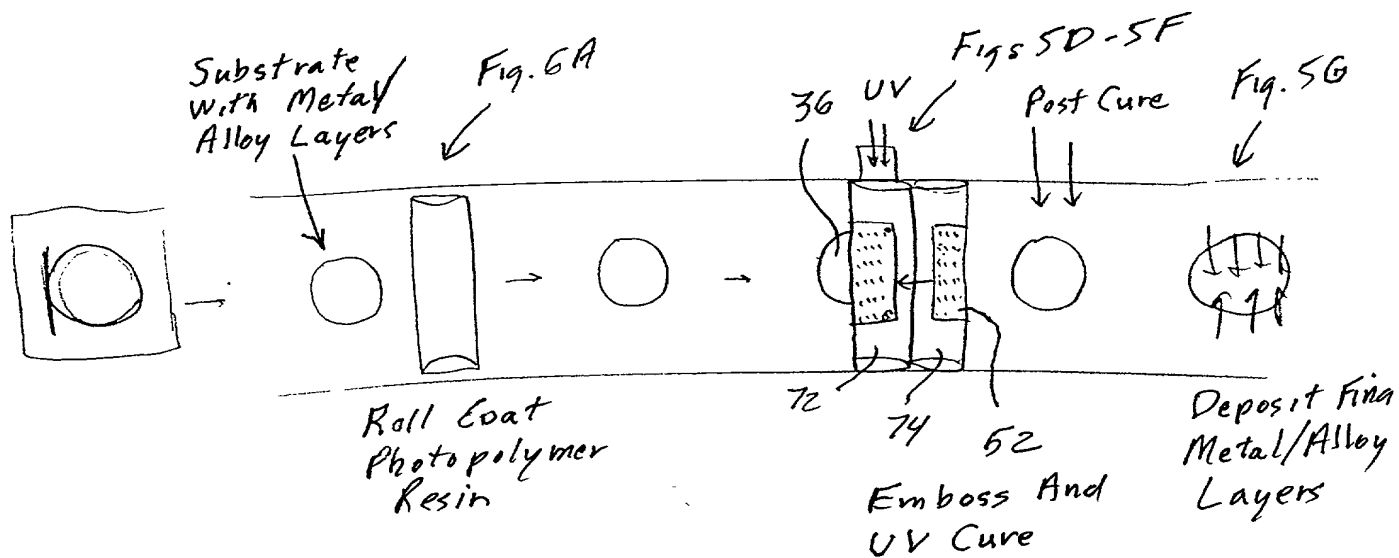 Substrate
with Metal/
Alloy Layers
Fig. 6A
36
UV
Figs 5D-5F
Post Cure
Fig. 5G
Roll Coat
Photopolymer
Resin
72
74
52
Emboss And
UV Cure
Deposit Fina
Metal/Alloy
Layers